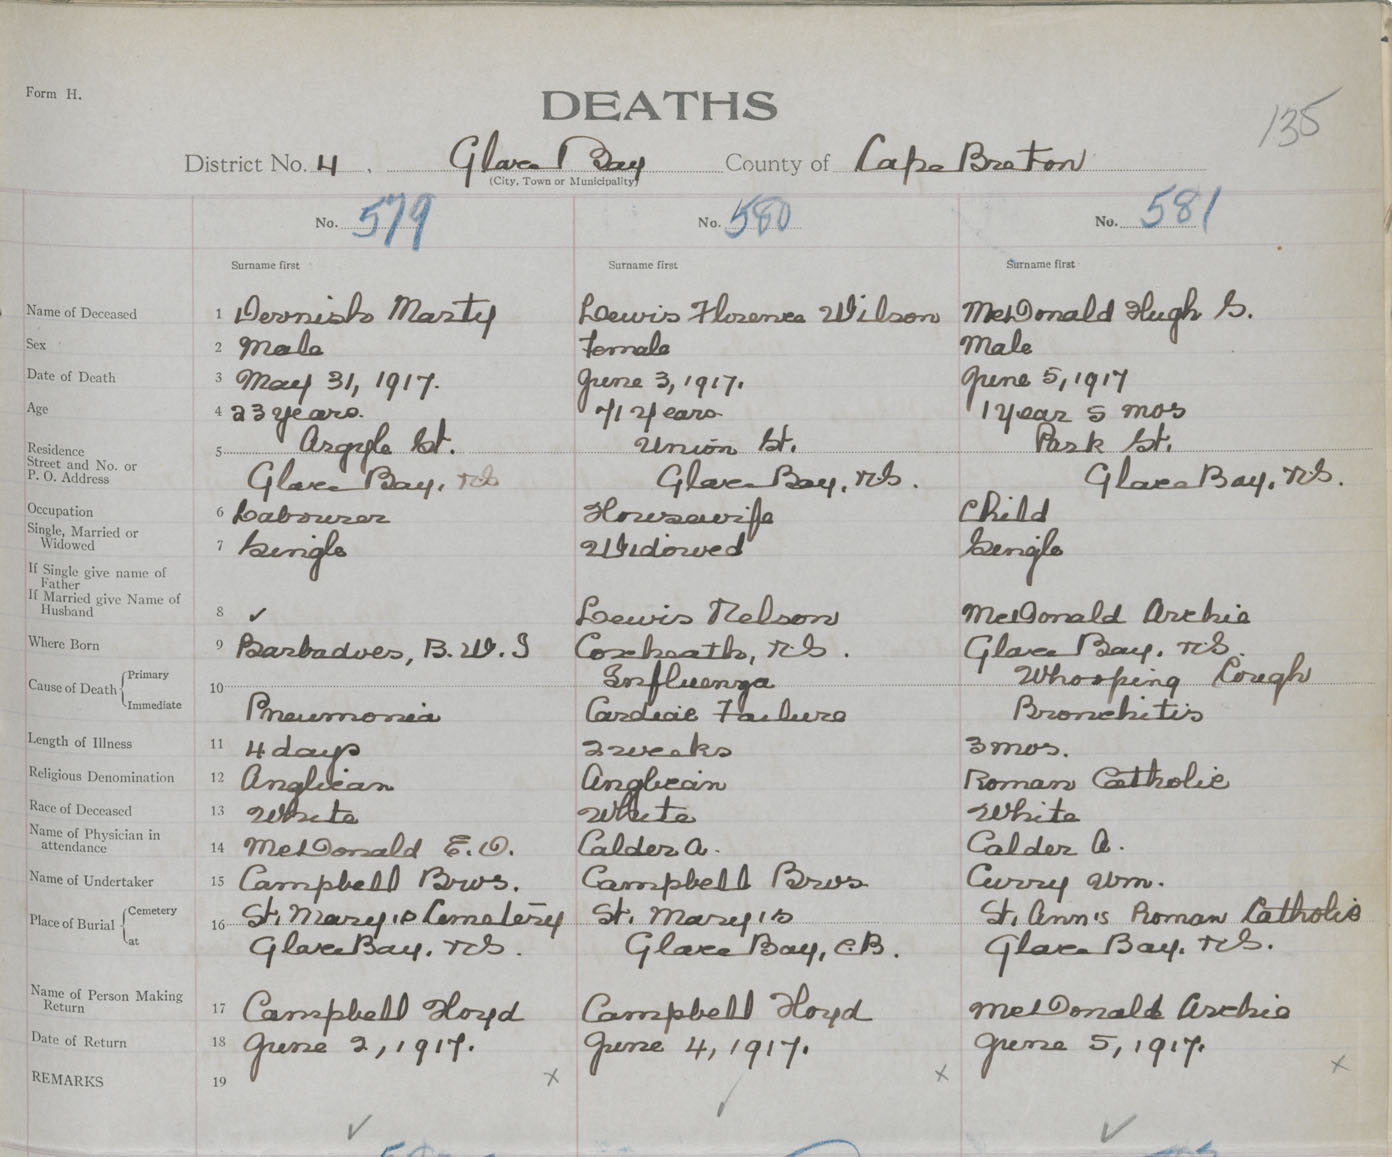 Form H.
DEATHS
135
District No. 4, Glace Bay County of Cape Breton
(City, Town or Municipality)
No. 579 No. 580 No. 581
Surname first Surname first Surname first
Name of Deceased 1 Dornish Marty Lewis Florence Wilson McDonald Hugh G.
Sex 2 Male Female Male
Date of Death 3 May 31, 1917. June 3, 1917. June 5, 1917
Age 4 23 years. 71 Years 1 Year 5 mos
Residence
Street and No. or
P. O. Address
5 Argyle St. Union St. Park St.
Glace Bay, N.S Glace Bay, N.S. Glace Bay, N.S.
Occupation 6 Labourer Housewife Child
Single, Married or
Widowed 7 Single Widowed Single
If Single give name of
Father
If Married give Name of
Husband 8 ✓ Lewis Nelson McDonald Archie
Where Born 9 Barbadoes, B.W.I Coxheath, N.S. Glace Bay, N.S.
Cause of Death Primary 10 Influenza Whooping Cough
Immediate Pneumonia Cardiac Failure Bronchitis
Length of Illness 11 4 days 2 weeks 3 mos.
Religious Denomination 12 Anglican Anglican Roman Catholic
Race of Deceased 13 White White White
Name of Physician in
attendance 14 McDonald E.O. Calder A. Calder A.
Name of Undertaker 15 Campbell Bros. Campbell Bros Curry Wm.
Place of Burial Cemetery 16 St. Mary's Cemetery St. Mary's St. Ann's Roman Catholic
at Glace Bay, N.S. Glace Bay, C.B. Glace Bay, N.S.
Name of Person Making
Return 17 Campbell Floyd Campbell Floyd McDonald Archie
Date of Return 18 June 2, 1917. June 4, 1917. June 5, 1917.
REMARKS 19 x x x
✓ ✓ ✓